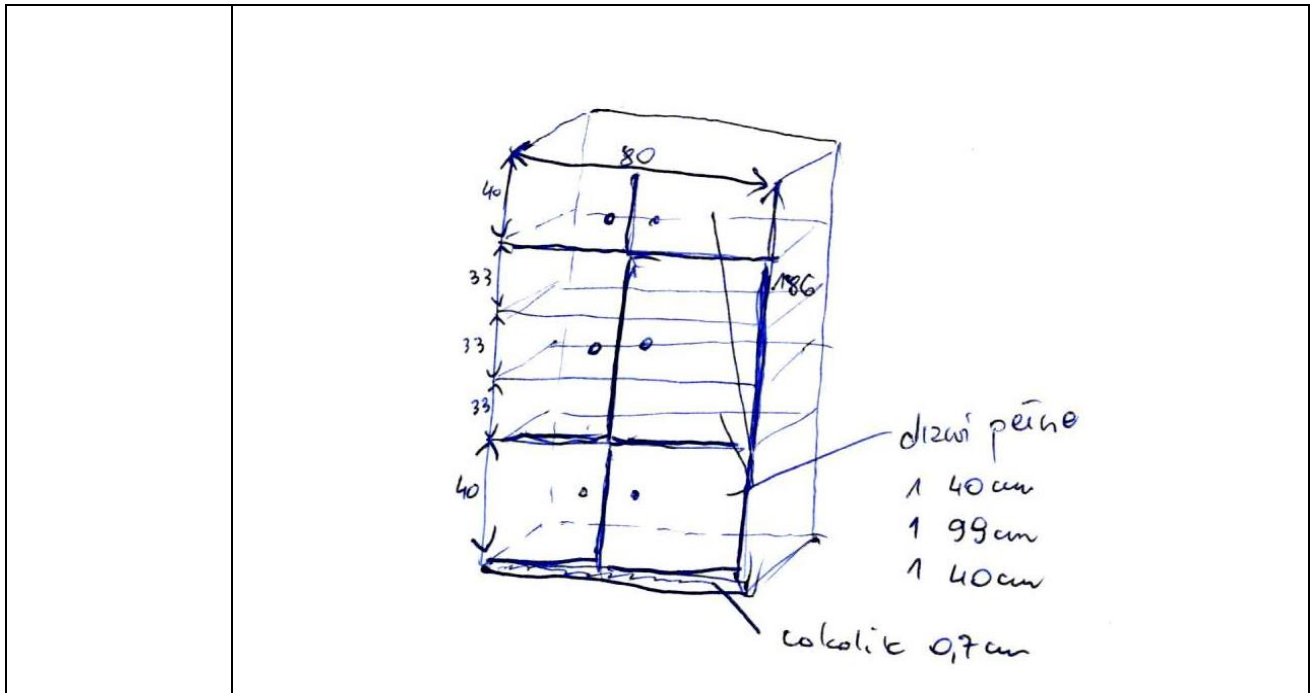 80
40
33
186
33
33
40
drzwi pełne
1 40 cm
1 99 cm
1 40 cm
cokolik 0,7 cm